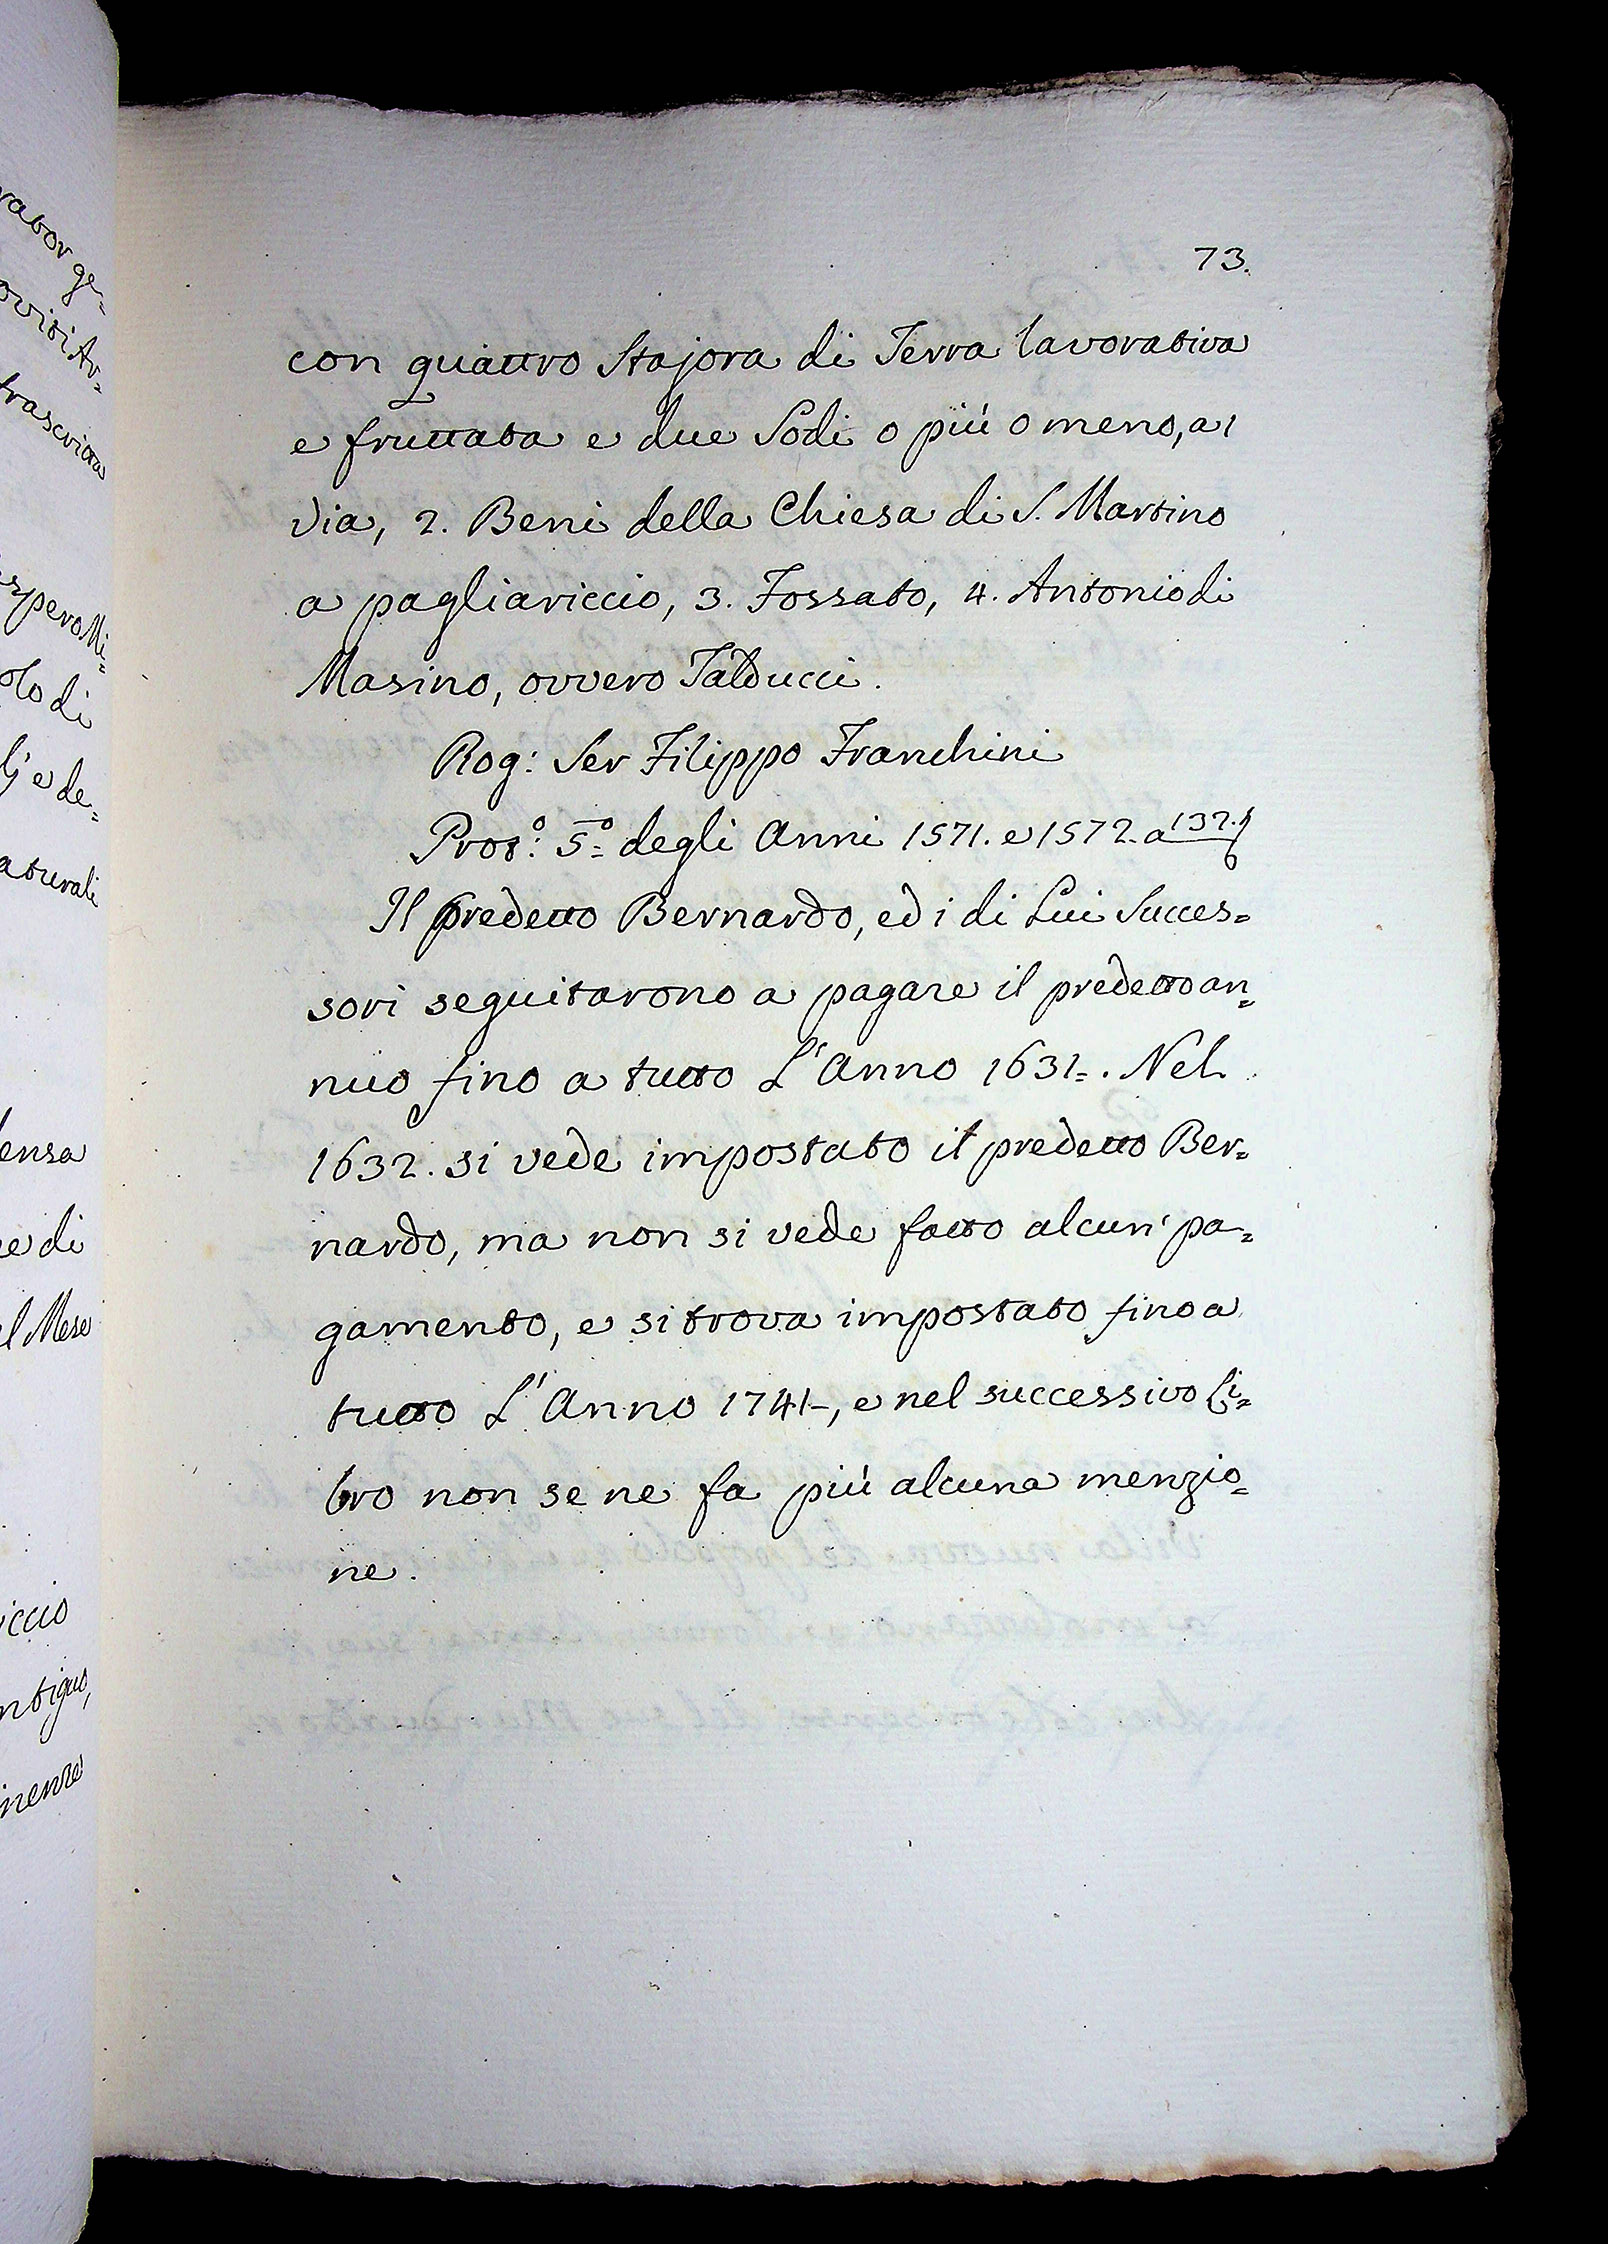 73.
con quattro Stajora di Terra lavorativa
e fruttata e due Sodi o più o meno, a 1
via, 2. Beni della Chiesa di S. Martino
a pagliariccio, 3. Fossato, 4. Antonio di
Masino, ovvero Talducci.
Rog: Ser Filippo Franchini
Prot.º 5º degli Anni 1571. e 1572. a 132.
Il predetto Bernardo, ed i di Lui Succes=
sori seguitarono a pagare il predetto an=
nuo fino a tutto L'Anno 1631=. Nel
1632. si vede impostato il predetto Ber=
nardo, ma non si vede fatto alcun' pa=
gamento, e si trova impostato fino a
tutto L'Anno 1741-, e nel successivo Li=
bro non se ne fa più alcuna menzio=
ne.